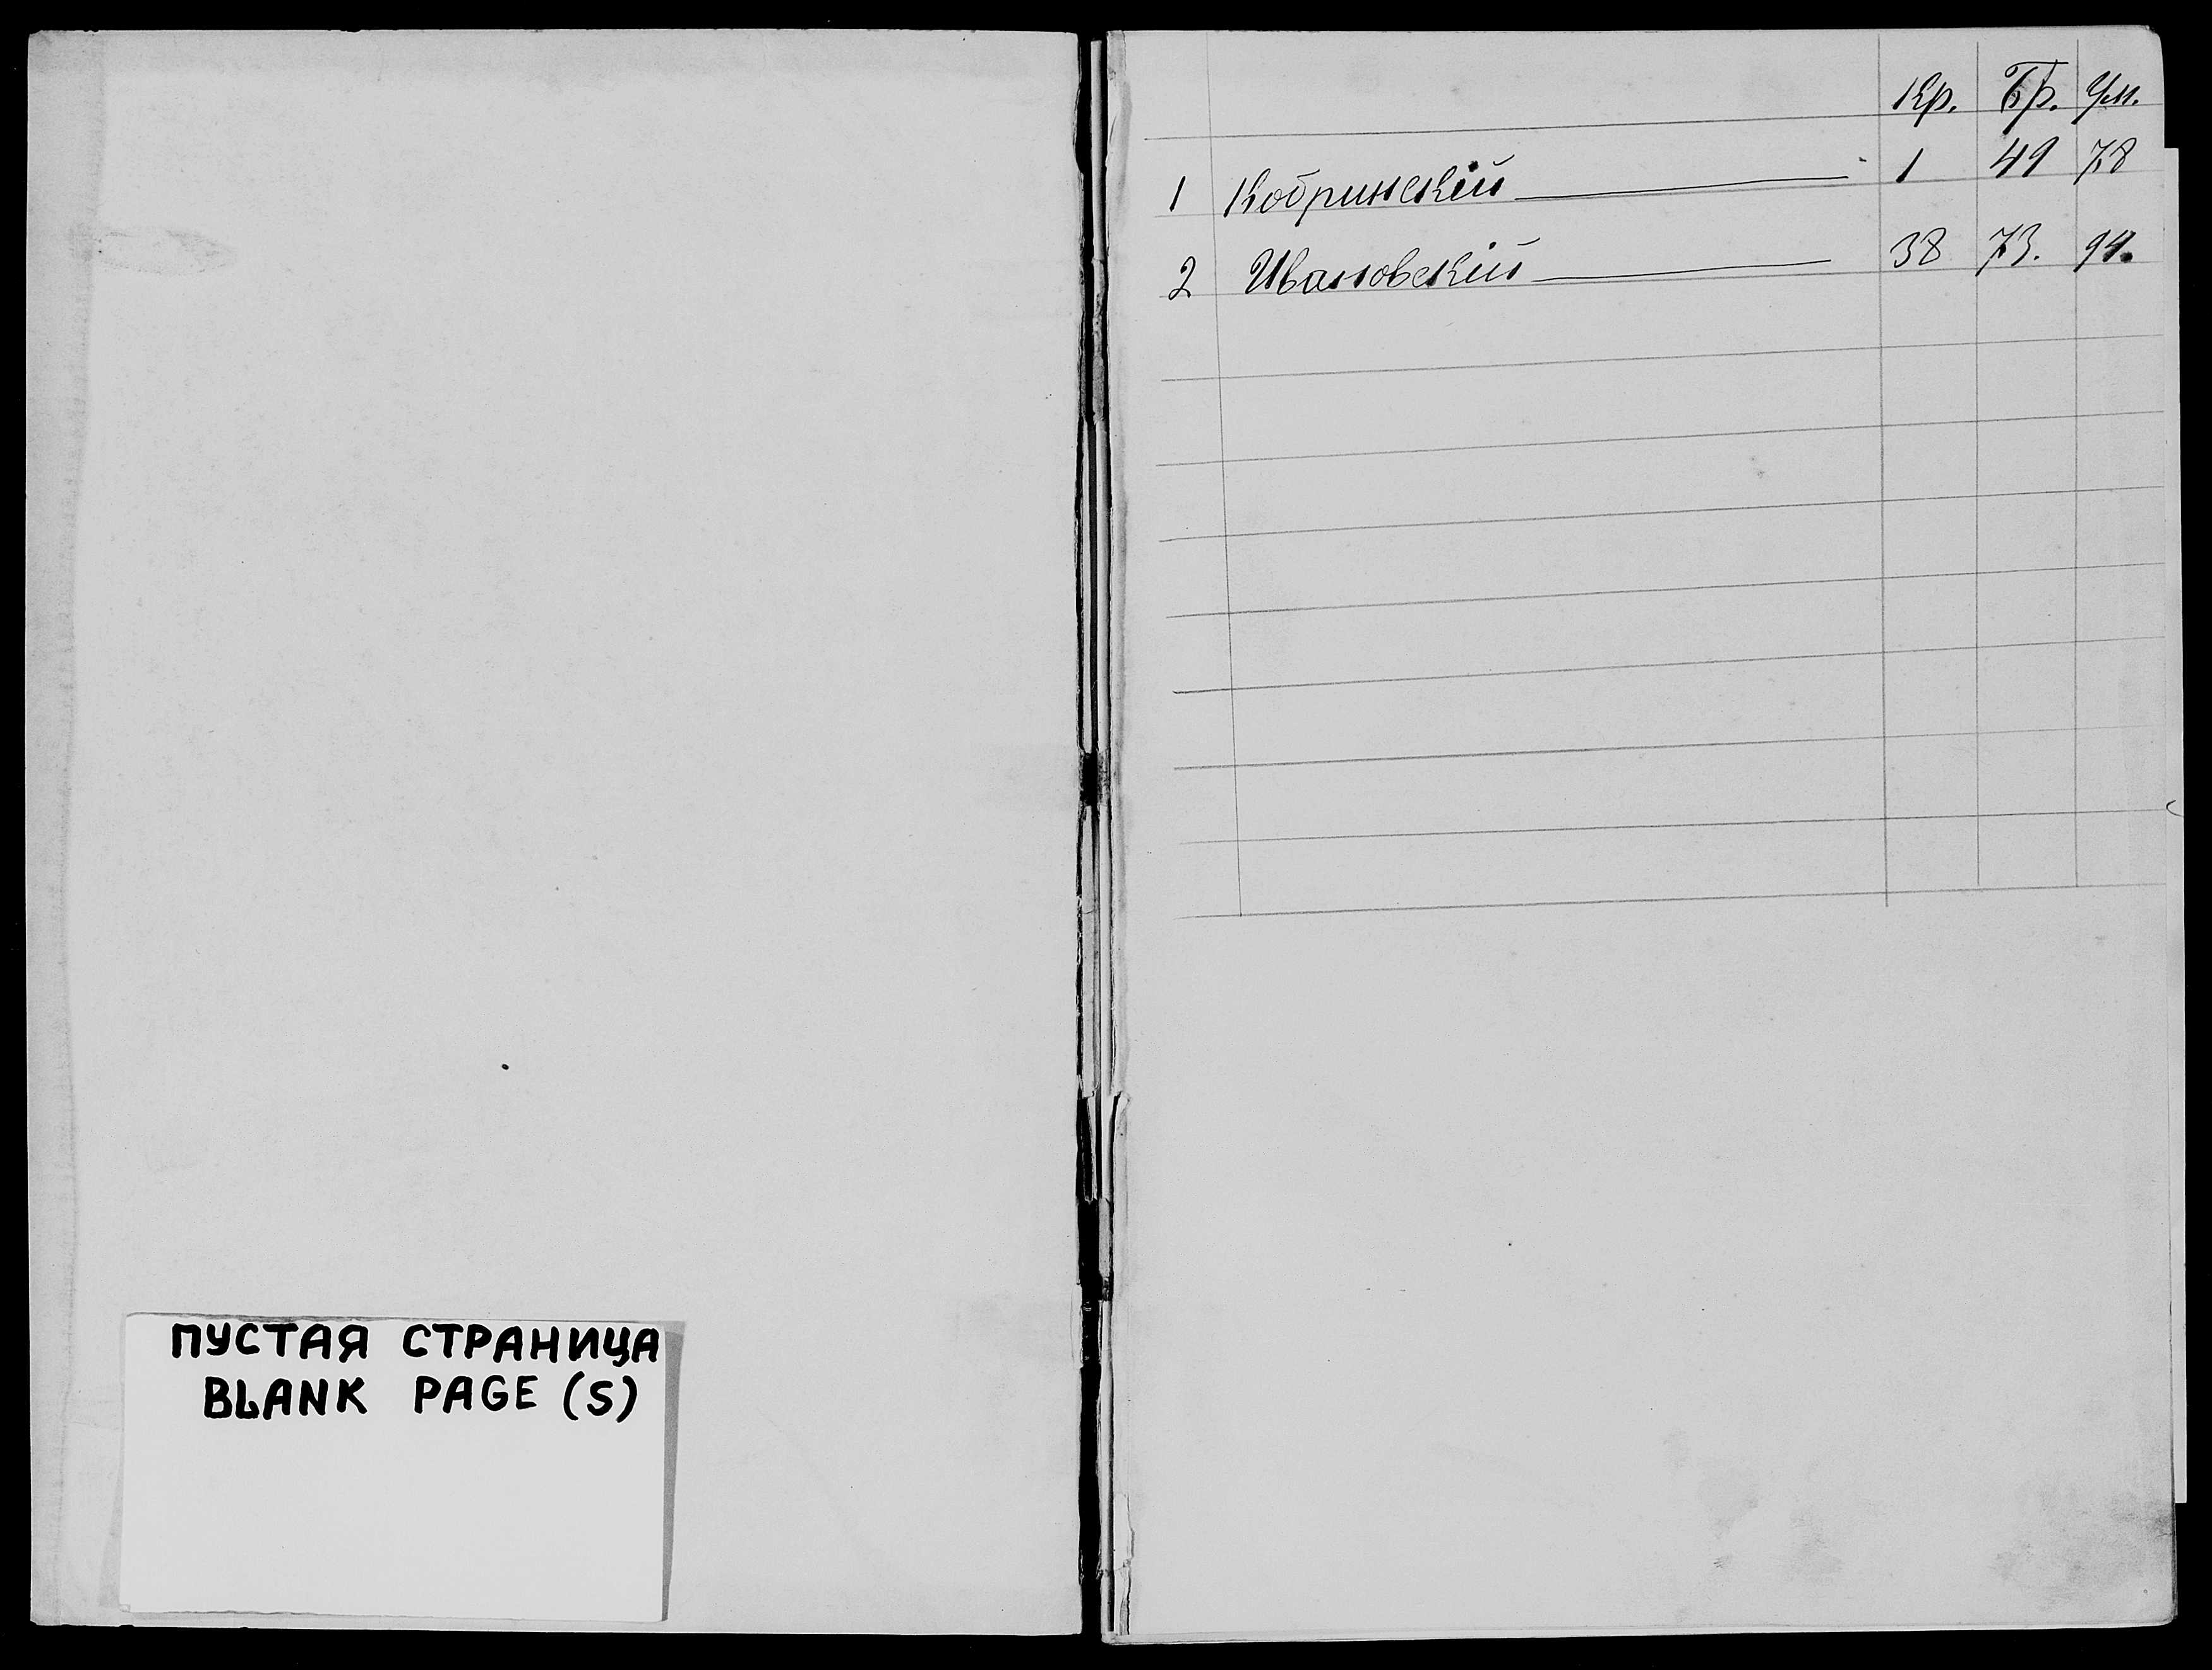 ПУСТАЯ СТРАНИЦА
BLANK PAGE (S)
Кр. Бр. Ум.
1 Кобринскій 1 49 78
2 Ивановскій 38 73. 94.